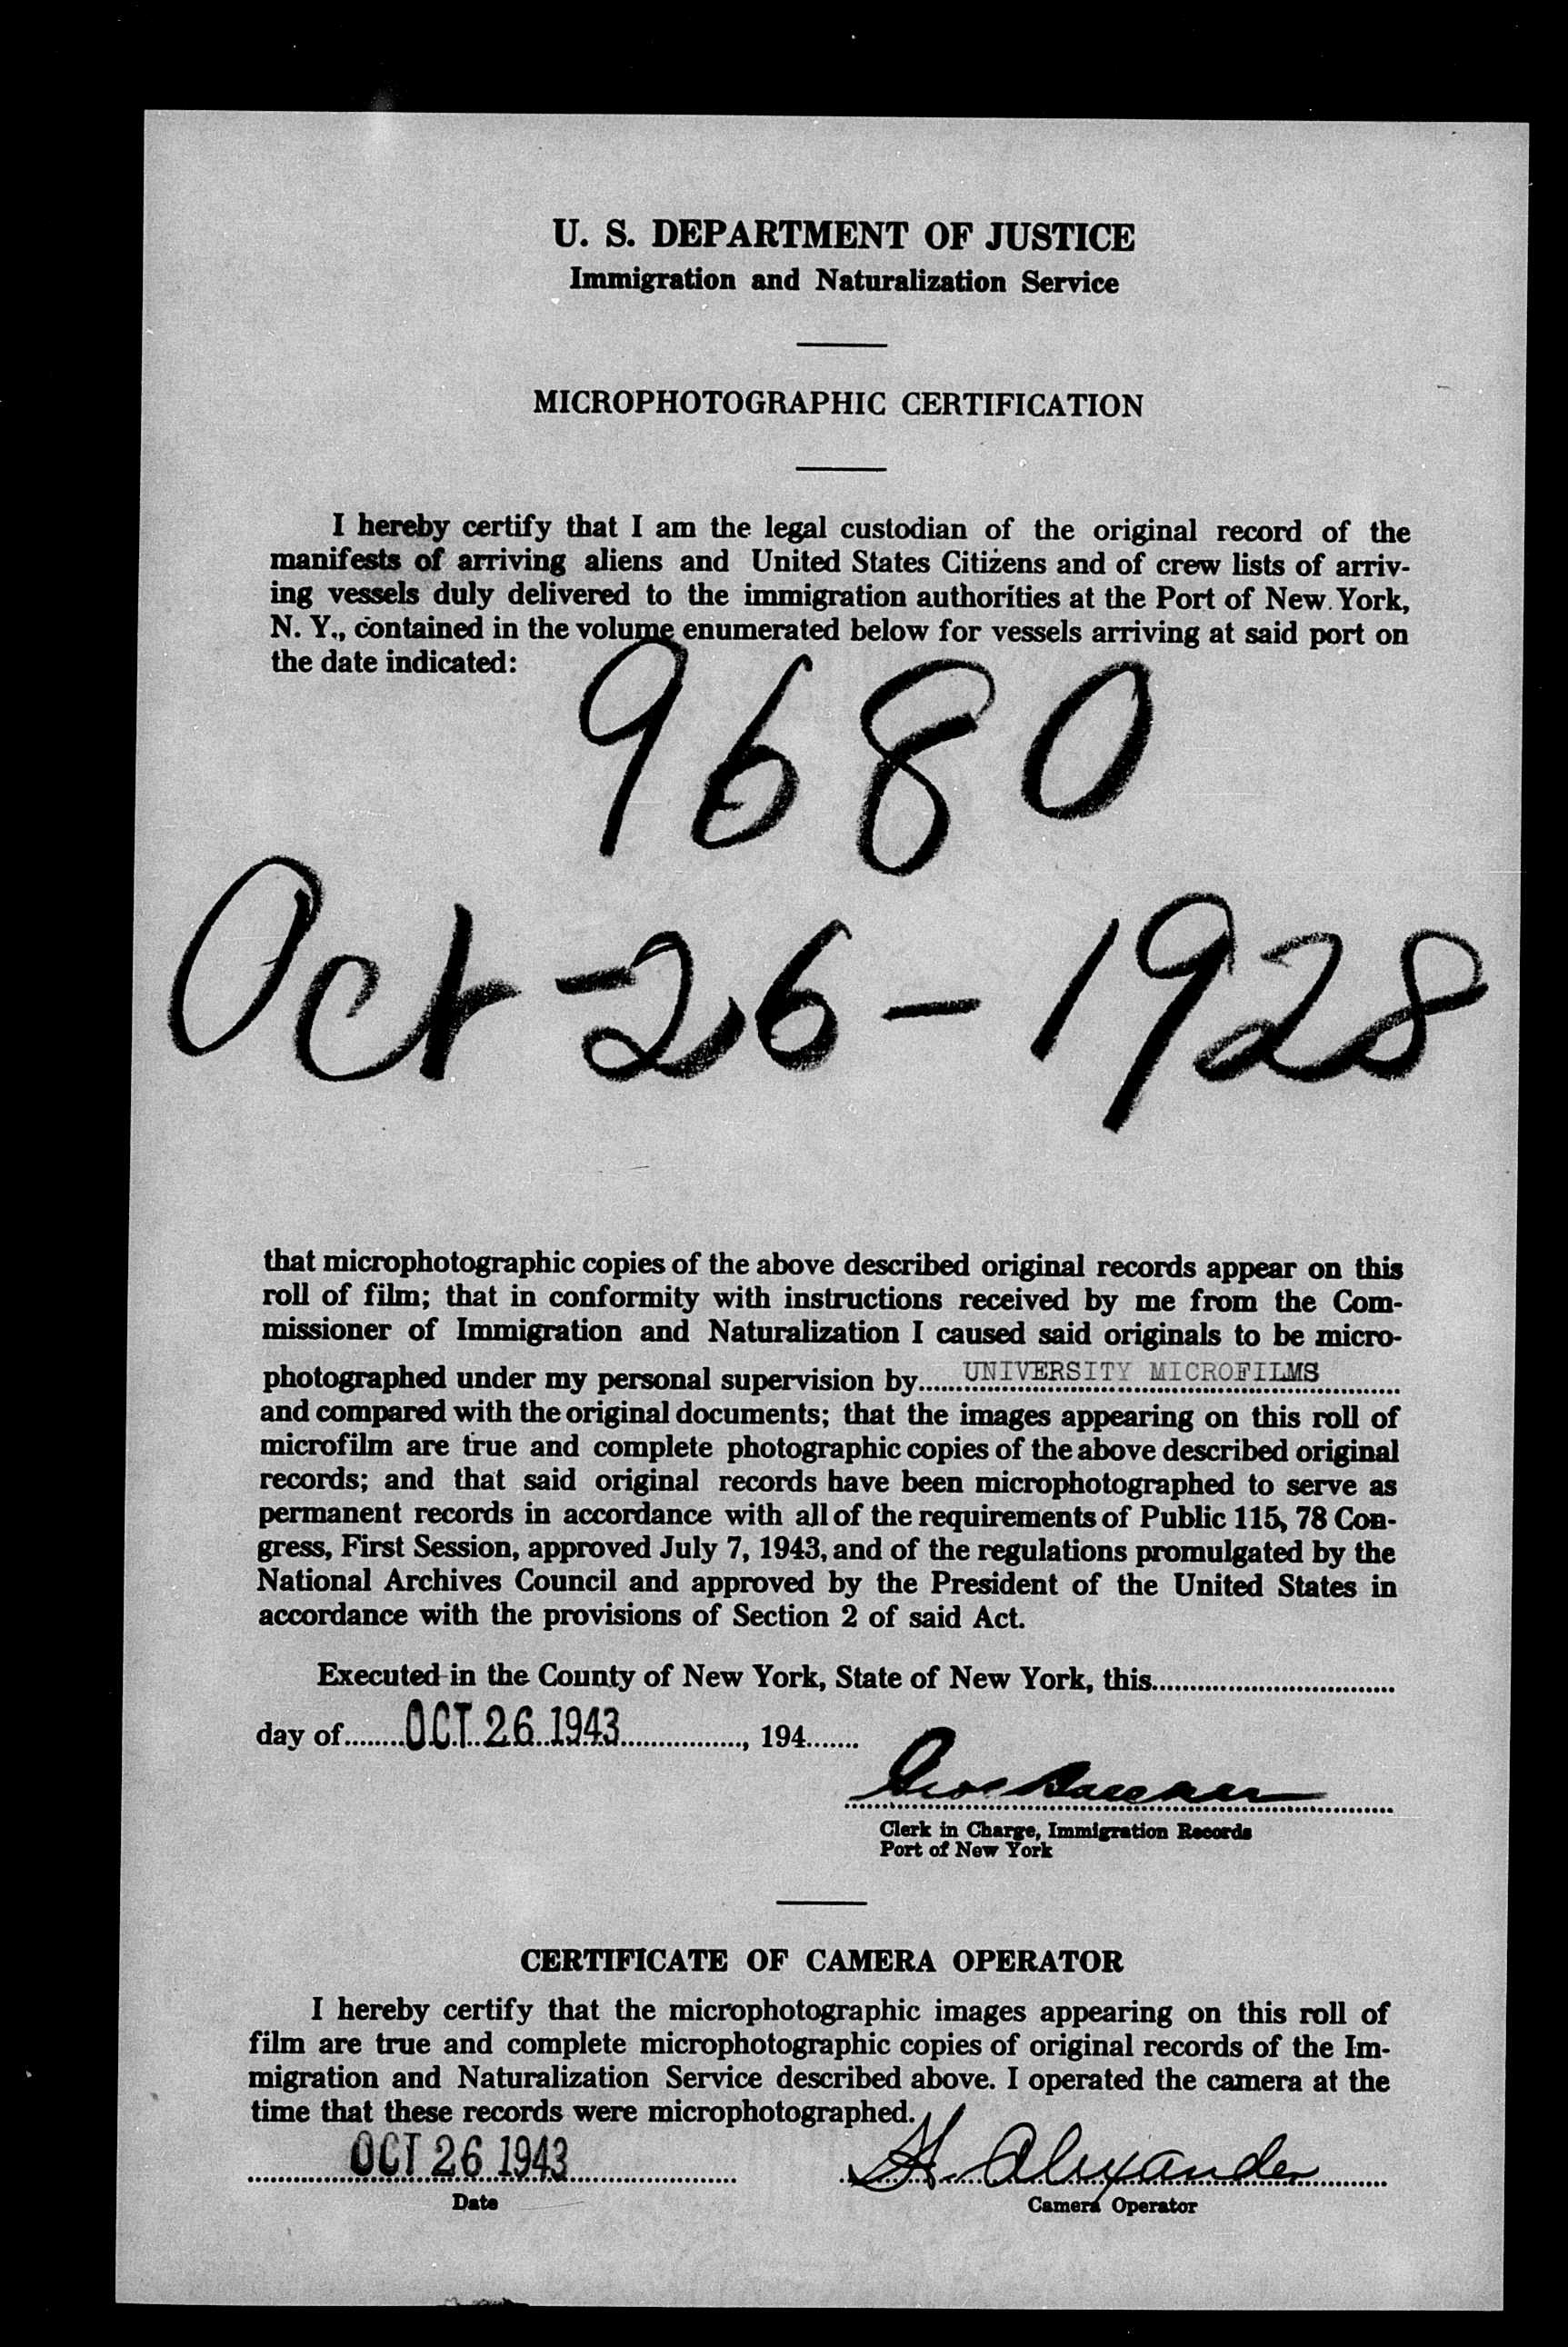 U. S. DEPARTMENT OF JUSTICE
Immigration and Naturalization Service
MICROPHOTOGRAPHIC CERTIFICATION
I hereby certify that I am the legal custodian of the original record of the
manifests of arriving aliens and United States Citizens and of crew lists of arriv-
ing vessels duly delivered to the immigration authorities at the Port of New York,
N. Y., contained in the volume enumerated below for vessels arriving at said port on
the date indicated:
9680
Oct - 26 - 1928
that microphotographic copies of the above described original records appear on this
roll of film; that in conformity with instructions received by me from the Com-
missioner of Immigration and Naturalization I caused said originals to be micro-
photographed under my personal supervision by UNIVERSITY MICROFILMS
and compared with the original documents; that the images appearing on this roll of
microfilm are true and complete photographic copies of the above described original
records; and that said original records have been microphotographed to serve as
permanent records in accordance with all of the requirements of Public 115, 78 Con-
gress, First Session, approved July 7, 1943, and of the regulations promulgated by the
National Archives Council and approved by the President of the United States in
accordance with the provisions of Section 2 of said Act.
Executed in the County of New York, State of New York, this
day of OCT 26 1943, 194
Clerk in Charge, Immigration Records
Port of New York
CERTIFICATE OF CAMERA OPERATOR
I hereby certify that the microphotographic images appearing on this roll of
film are true and complete microphotographic copies of original records of the Im-
migration and Naturalization Service described above. I operated the camera at the
time that these records were microphotographed.
OCT 26 1943 H. Alexander
Date Camera Operator